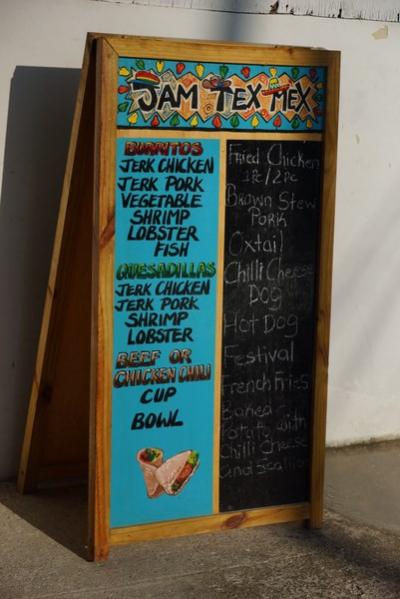 JAM TEX MEX
BURRITOS
JERK CHICKEN
JERK PORK
VEGETABLE
SHRIMP
LOBSTER
FISH
QUESADILLAS
JERK CHICKEN
JERK PORK
SHRIMP
LOBSTER
BEEF OR
CHICKEN CHILI
CUP
BOWL
Fried Chicken
1Pc/2Pc
Brown Stew
PorK
Oxtail
Chilli Cheese
Dog
Hot Dog
Festival
French Fries
Baked
Potato with
Chilli Cheese
and Scallion